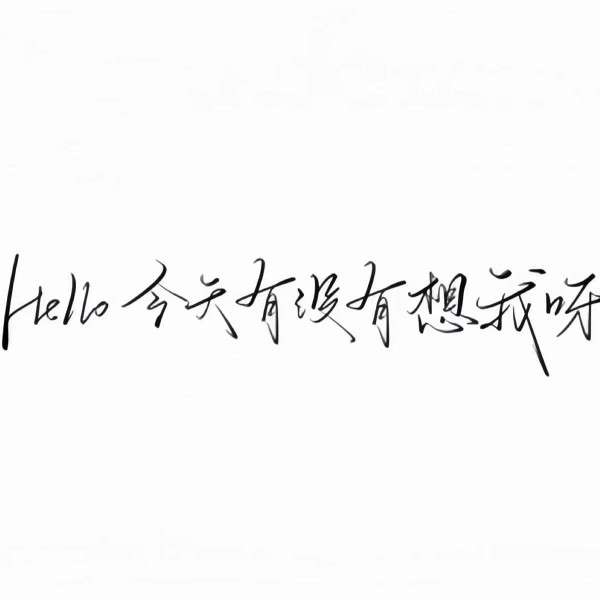 Hello 今天有没有想我呀